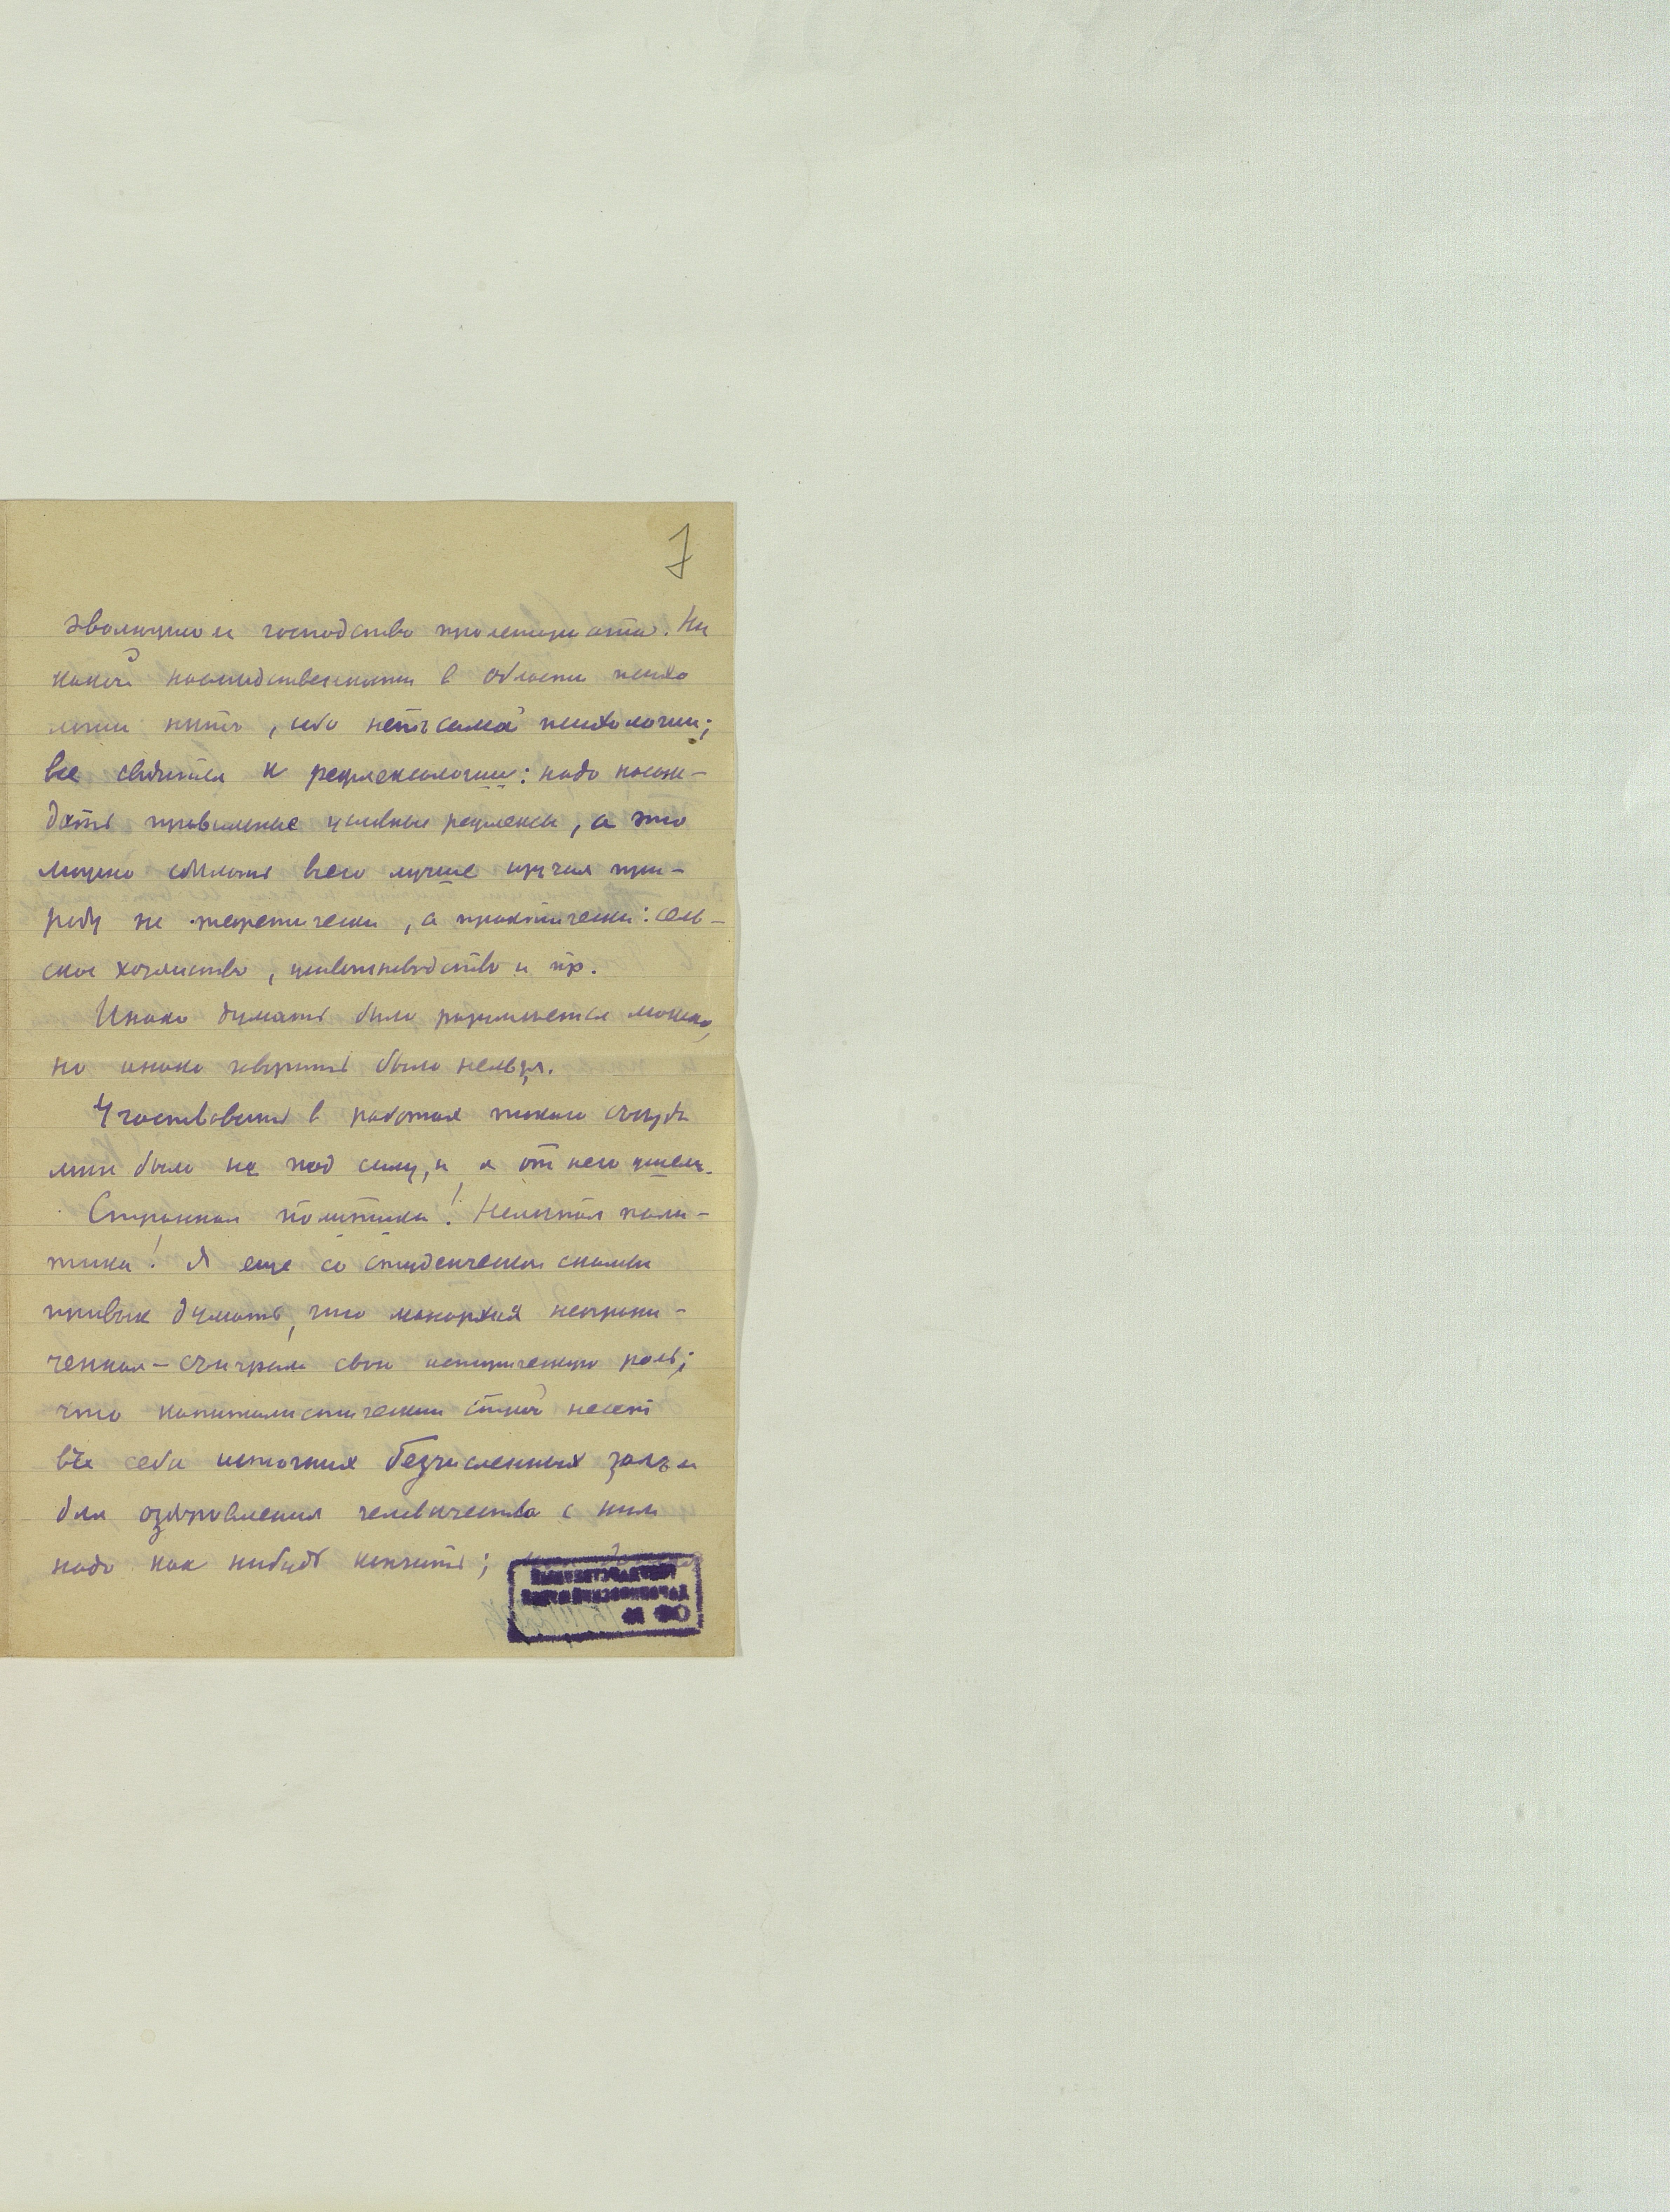 7
эволюцию и господство пролетариата. Ни
какой наследственности в области психо
логии нѣтъ, ибо нетъ самой психологии;
все сводится к рефлексологии: надо насаж-
дать правильные условные рефлексы, а это
можно сделать всего лучше изучая при-
роду не теоретически, а практически: сель-
ское хозяйство, цветоводство и пр.
Инако думать было разумеется можно,
но инако говорить было нельзя.
Участвовать в работах такого съезда
мне было не под силу, и я от него ушел.
Странная политика! Нелепая поли-
тика! Я еще со студенческой скамьи
привык думать, что монархия неограни-
ченная - съиграла свою историческую роль;
что капиталистический строй несет
въ себе источник безчисленных зол и
для оздоровления человечества с ним
надо как нибудь кончить;